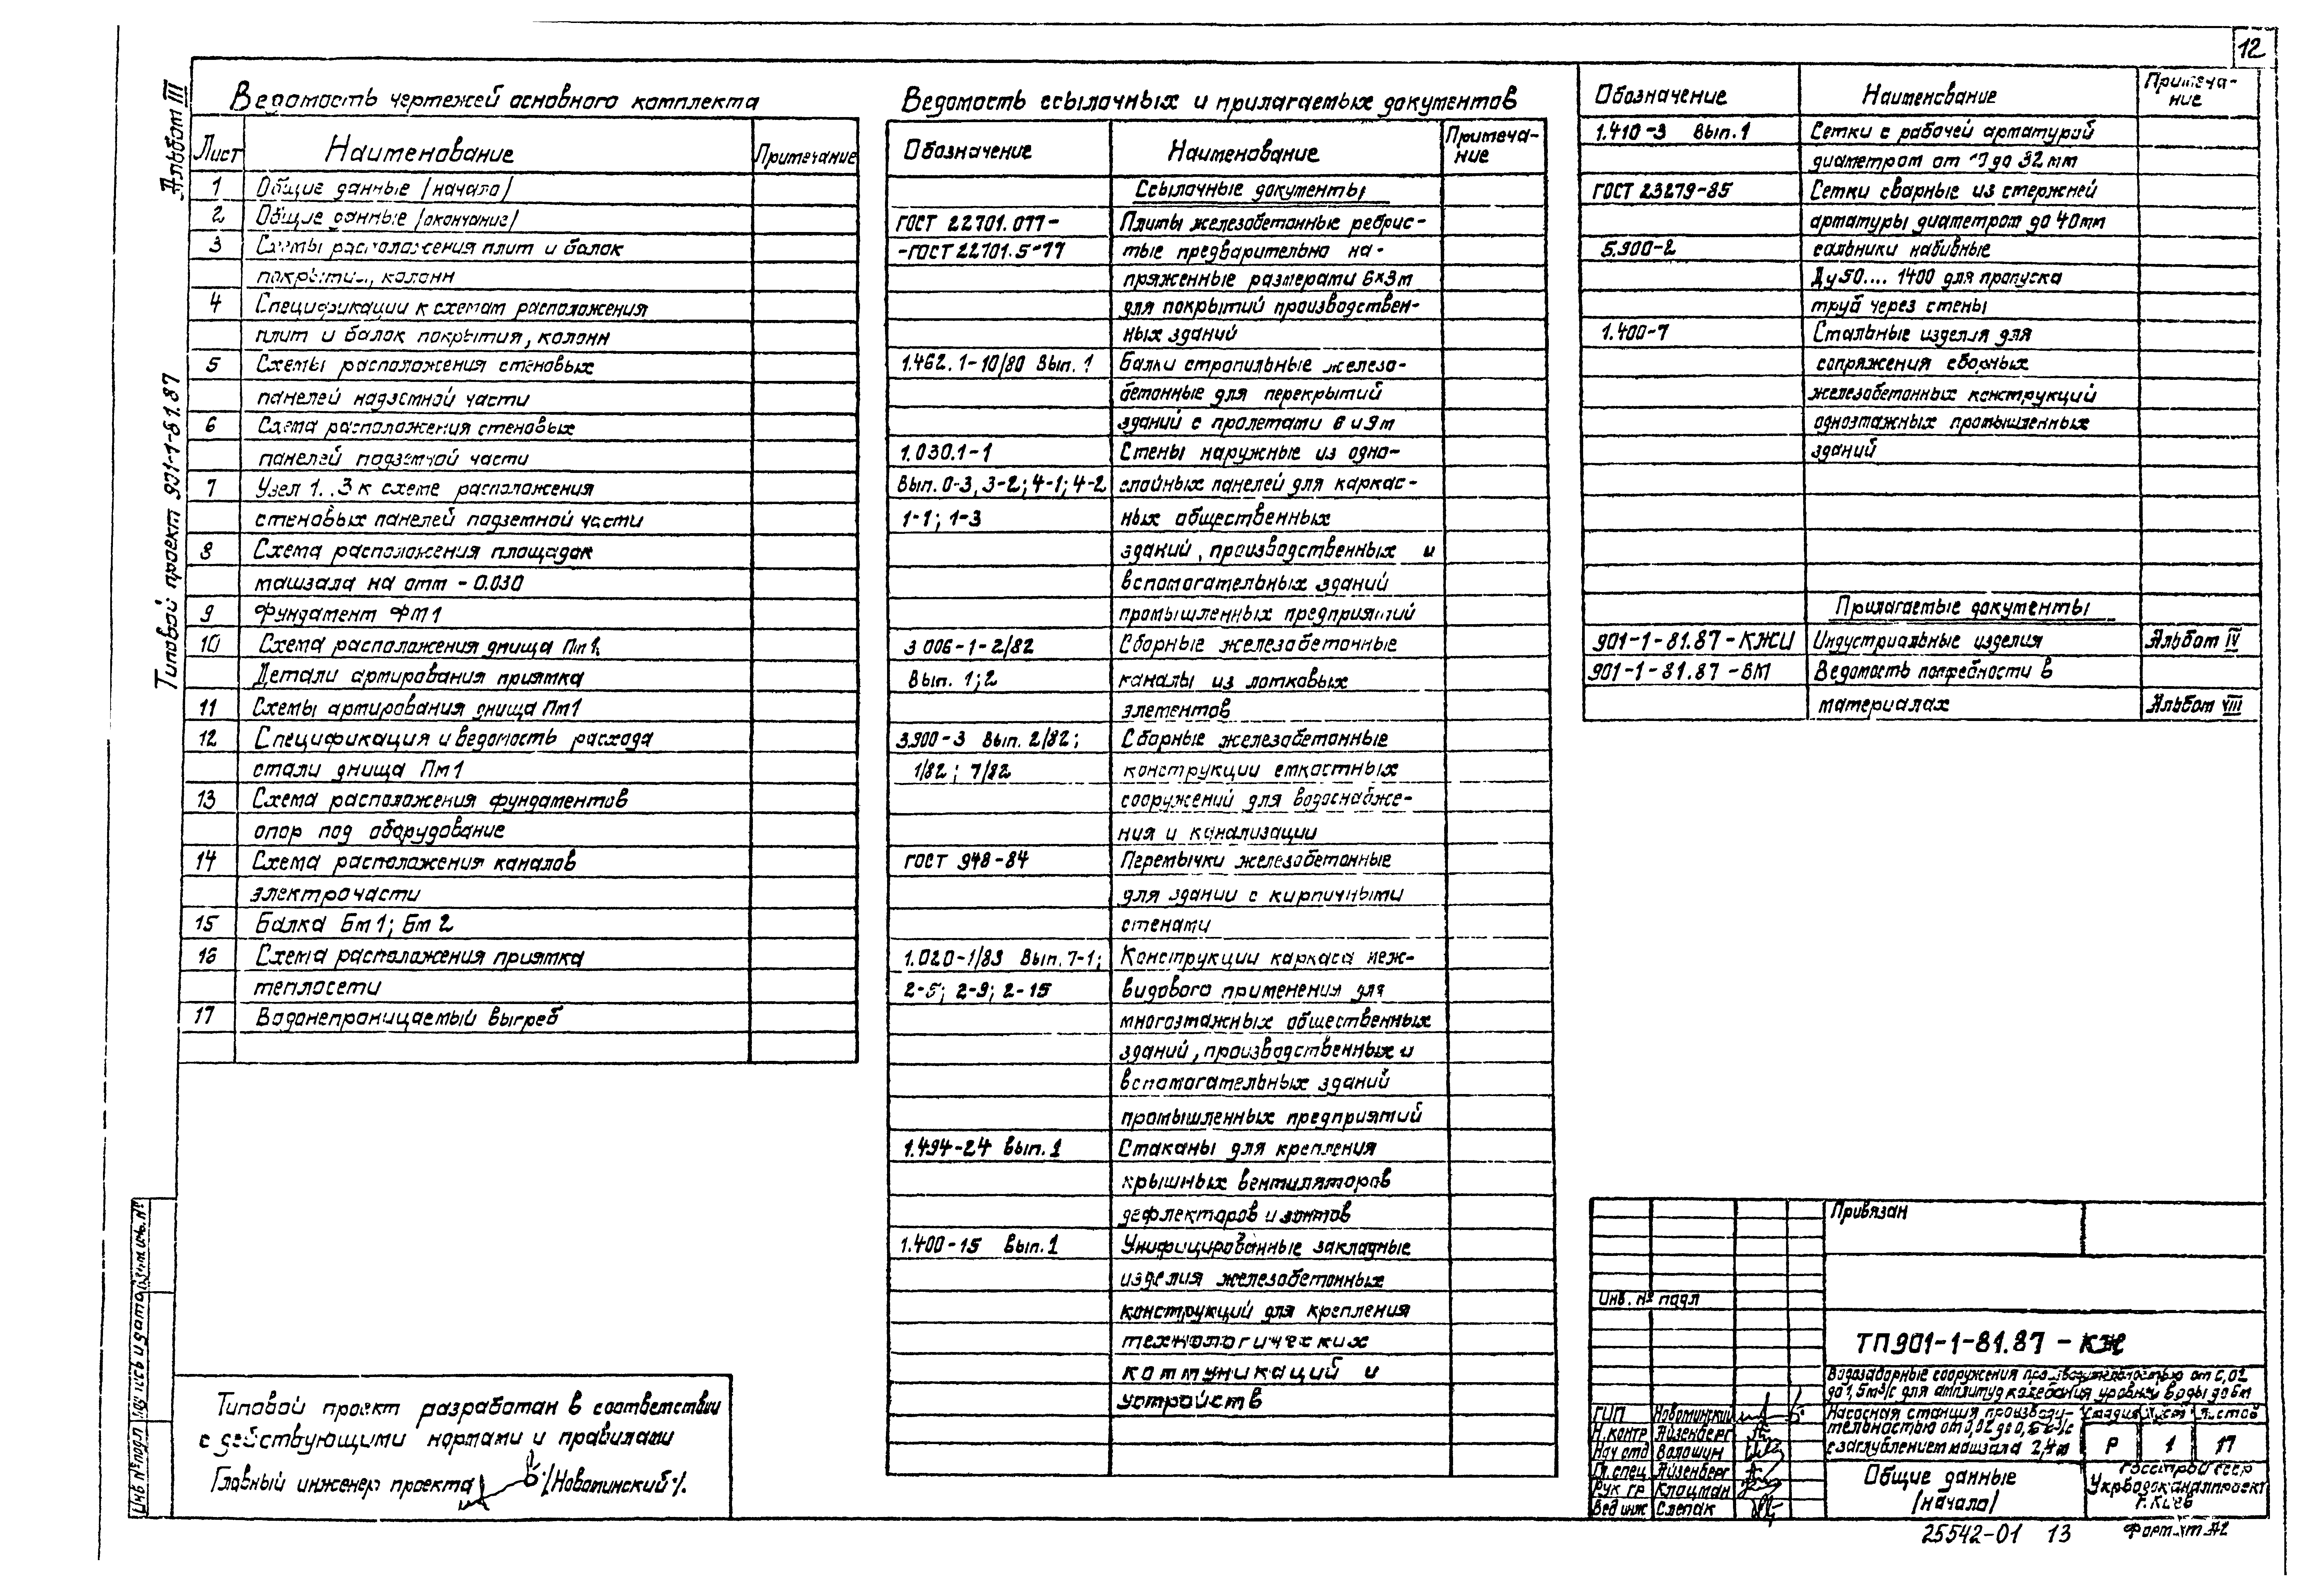 12
Альбом III
Типовой проект 901-1-81.87
Ведомость чертежей основного комплекта
Лист Наименование Примечание
1 Общие данные /начало/
2 Общие данные /окончание/
3 Схемы расположения плит и балок
покрытия, колонн
4 Спецификации к схемам расположения
плит и балок покрытия, колонн
5 Схемы расположения стеновых
панелей надземной части
6 Схема расположения стеновых
панелей подземной части
7 Узел 1...3 к схеме расположения
стеновых панелей подземной части
8 Схема расположения площадок
машзала на отм - 0.030
9 Фундамент ФМ1
10 Схема расположения днища Пм1.
Детали армирования приямка
11 Схемы армирования днища Пм1
12 Спецификация и ведомость расхода
стали днища Пм1
13 Схема расположения фундаментов
опор под оборудование
14 Схема расположения каналов
электрочасти
15 Балка Бм1; Бм2
16 Схема расположения приямка
теплосети
17 Водонепроницаемый выгреб
Типовой проект разработан в соответствии
с действующими нормами и правилами
Главный инженер проекта /Новоминский/.
Ведомость ссылочных и прилагаемых документов
Обозначение Наименование Примеча-
ние
Ссылочные документы
ГОСТ 22701.077- Плиты железобетонные ребрис-
-ГОСТ 22701.5-77 тые предварительно на-
пряженные размерами 6×3м
для покрытий производствен-
ных зданий
1.462.1-10/80 Вып. 1 Балки стропильные железо-
бетонные для перекрытий
зданий с пролетами 6 и 9м
1.030.1-1 Стены наружные из одно-
Вып. 0-3, 3-2; 4-1; 4-2 слойных панелей для каркас-
1-1; 1-3 ных общественных
зданий, производственных и
вспомогательных зданий
промышленных предприятий
3 006-1-2/82 Сборные железобетонные
Вып. 1;2 каналы из лотковых
элементов
3.900-3 Вып. 2/82; Сборные железобетонные
1/82; 7/82 конструкции емкостных
сооружений для водоснабже-
ния и канализации
ГОСТ 948-84 Перемычки железобетонные
для здании с кирпичными
стенами
1.020-1/83 Вып. 7-1; Конструкции каркаса меж-
2-5; 2-9; 2-15 видового применения для
многоэтажных общественных
зданий, производственных и
вспомогательных зданий
промышленных предприятий
1.494-24 Вып. 1 Стаканы для крепления
крышных вентиляторов
дефлекторов и зонтов
1.400-15 Вып. 1 Унифицированные закладные
изделия железобетонных
конструкций для крепления
технологических
коммуникаций и
устройств
Обозначение Наименование Примеча-
ние
1.410-3 Вып. 1 Сетки с рабочей арматурой
диаметром от до 32мм
ГОСТ 23279-85 Сетки сварные из стержней
арматуры диаметром до 40мм
5.900-2 сальники набивные
Ду50.... 1400 для пропуска
труб через стены
1.400-7 Стальные изделия для
сопряжения сборных
железобетонных конструкций
одноэтажных промышленных
зданий
Прилагаемые документы
901-1-81.87-КЖИ Индустриальные изделия Альбом IV
901-1-81.87-ВМ Ведомость потребности в
материалах Альбом VIII
Привязан
Инв. № подл
ТП901-1-81.87 - КЖ
Водозаборные сооружения производительностью от 0,02
до 1,5м³/с для амплитуд колебания уровней воды до 6м
ГИП Новоминский Насосная станция производи- Стадия Лист Листов
Н.контр Айзенберг тельностью от 0,02 до
Нач отд Волошин с заглублением машзала 2,4м Р 1 17
Гл.спец Айзенберг Общие данные Госстрой СССР
Рук гр Клоцман /начало/ Укрводоканалпроект
Вед инж Слепак г. Киев
25542-01 13 Формат А2
Инв № подл Подпись и дата Взам инв. №